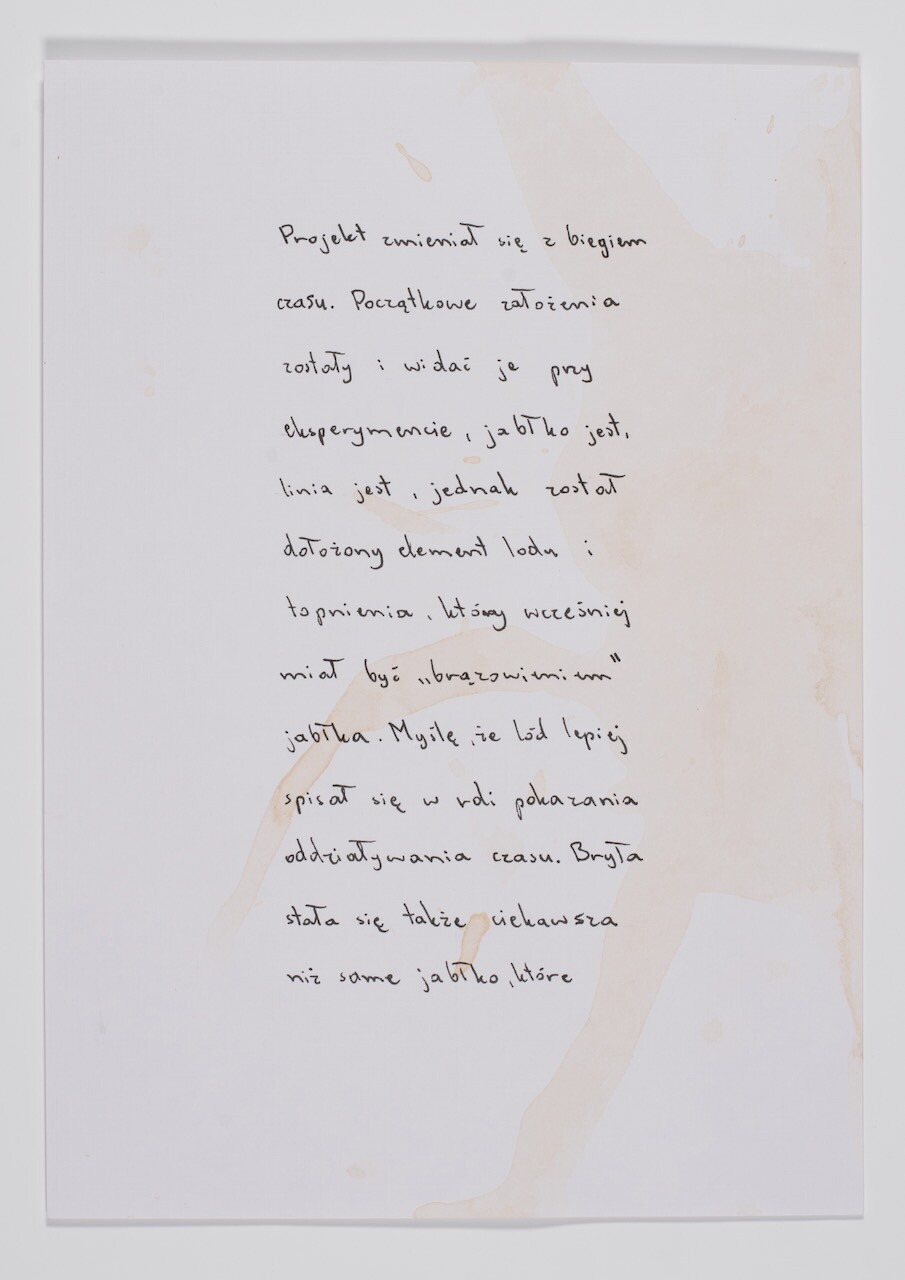 Projekt zmieniał się z biegiem
czasu. Początkowe założenia
zostały i widać je przy
eksperymencie, jabłko jest,
linia jest, jednak został
dołożony element lodu i
topnienia, który wcześniej
miał być „brązowieniem"
jabłka. Myślę, że lód lepiej
spisał się w roli pokazania
oddziaływania czasu. Bryła
stała się także ciekawsza
niż same jabłko, które